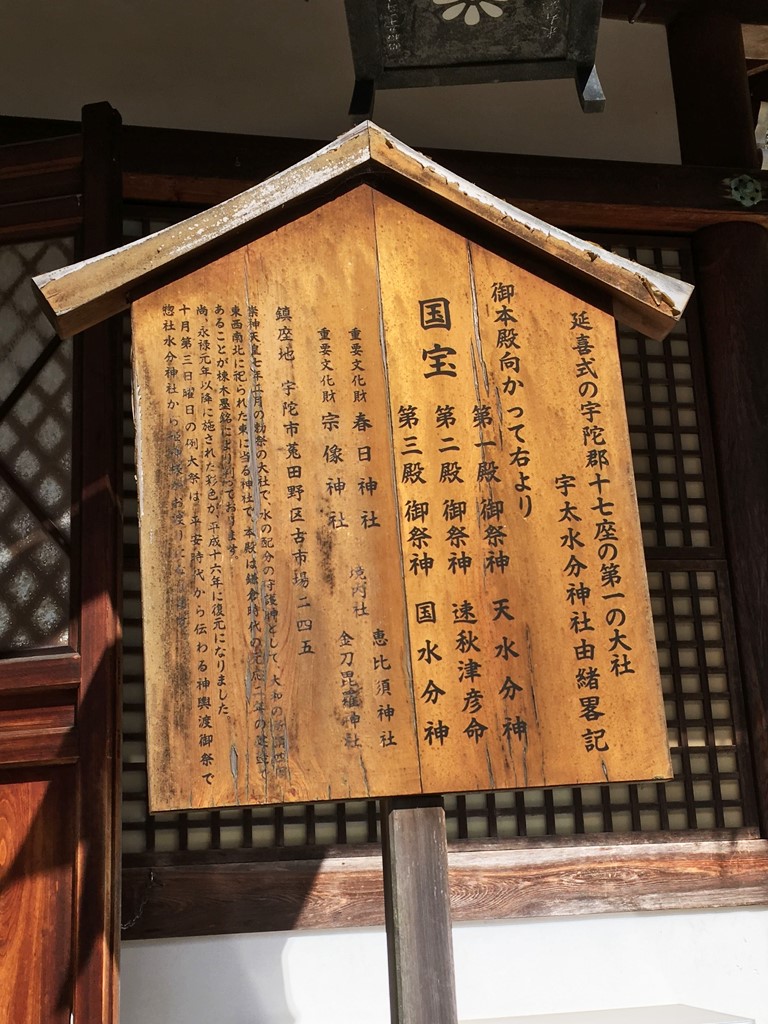 延喜式の宇陀郡十七座の第一の大社
宇太水分神社由緒畧記
御本殿向かって右より
国宝
第一殿 御祭神 天水分神
第二殿 御祭神 速秋津彦命
第三殿 御祭神 国水分神
重要文化財 春日神社 境内社 恵比須神社
重要文化財 宗像神社 金刀毘羅神社
鎮座地 宇陀市菟田野区古市場二四五
崇神天皇七年二月の勅祭の大社で、水の配分の守護神として、大和の
東西南北に祀られた東に当る神社で、本殿は鎌倉時代の元応二年の
あることが棟木墨銘により ております。
尚、永禄元年以降に施された彩色が、平成十六年に復元になりました。
十月第三日曜日の例大祭は、平安時代から伝わる神輿渡御祭で
惣社水分神社から お渡り